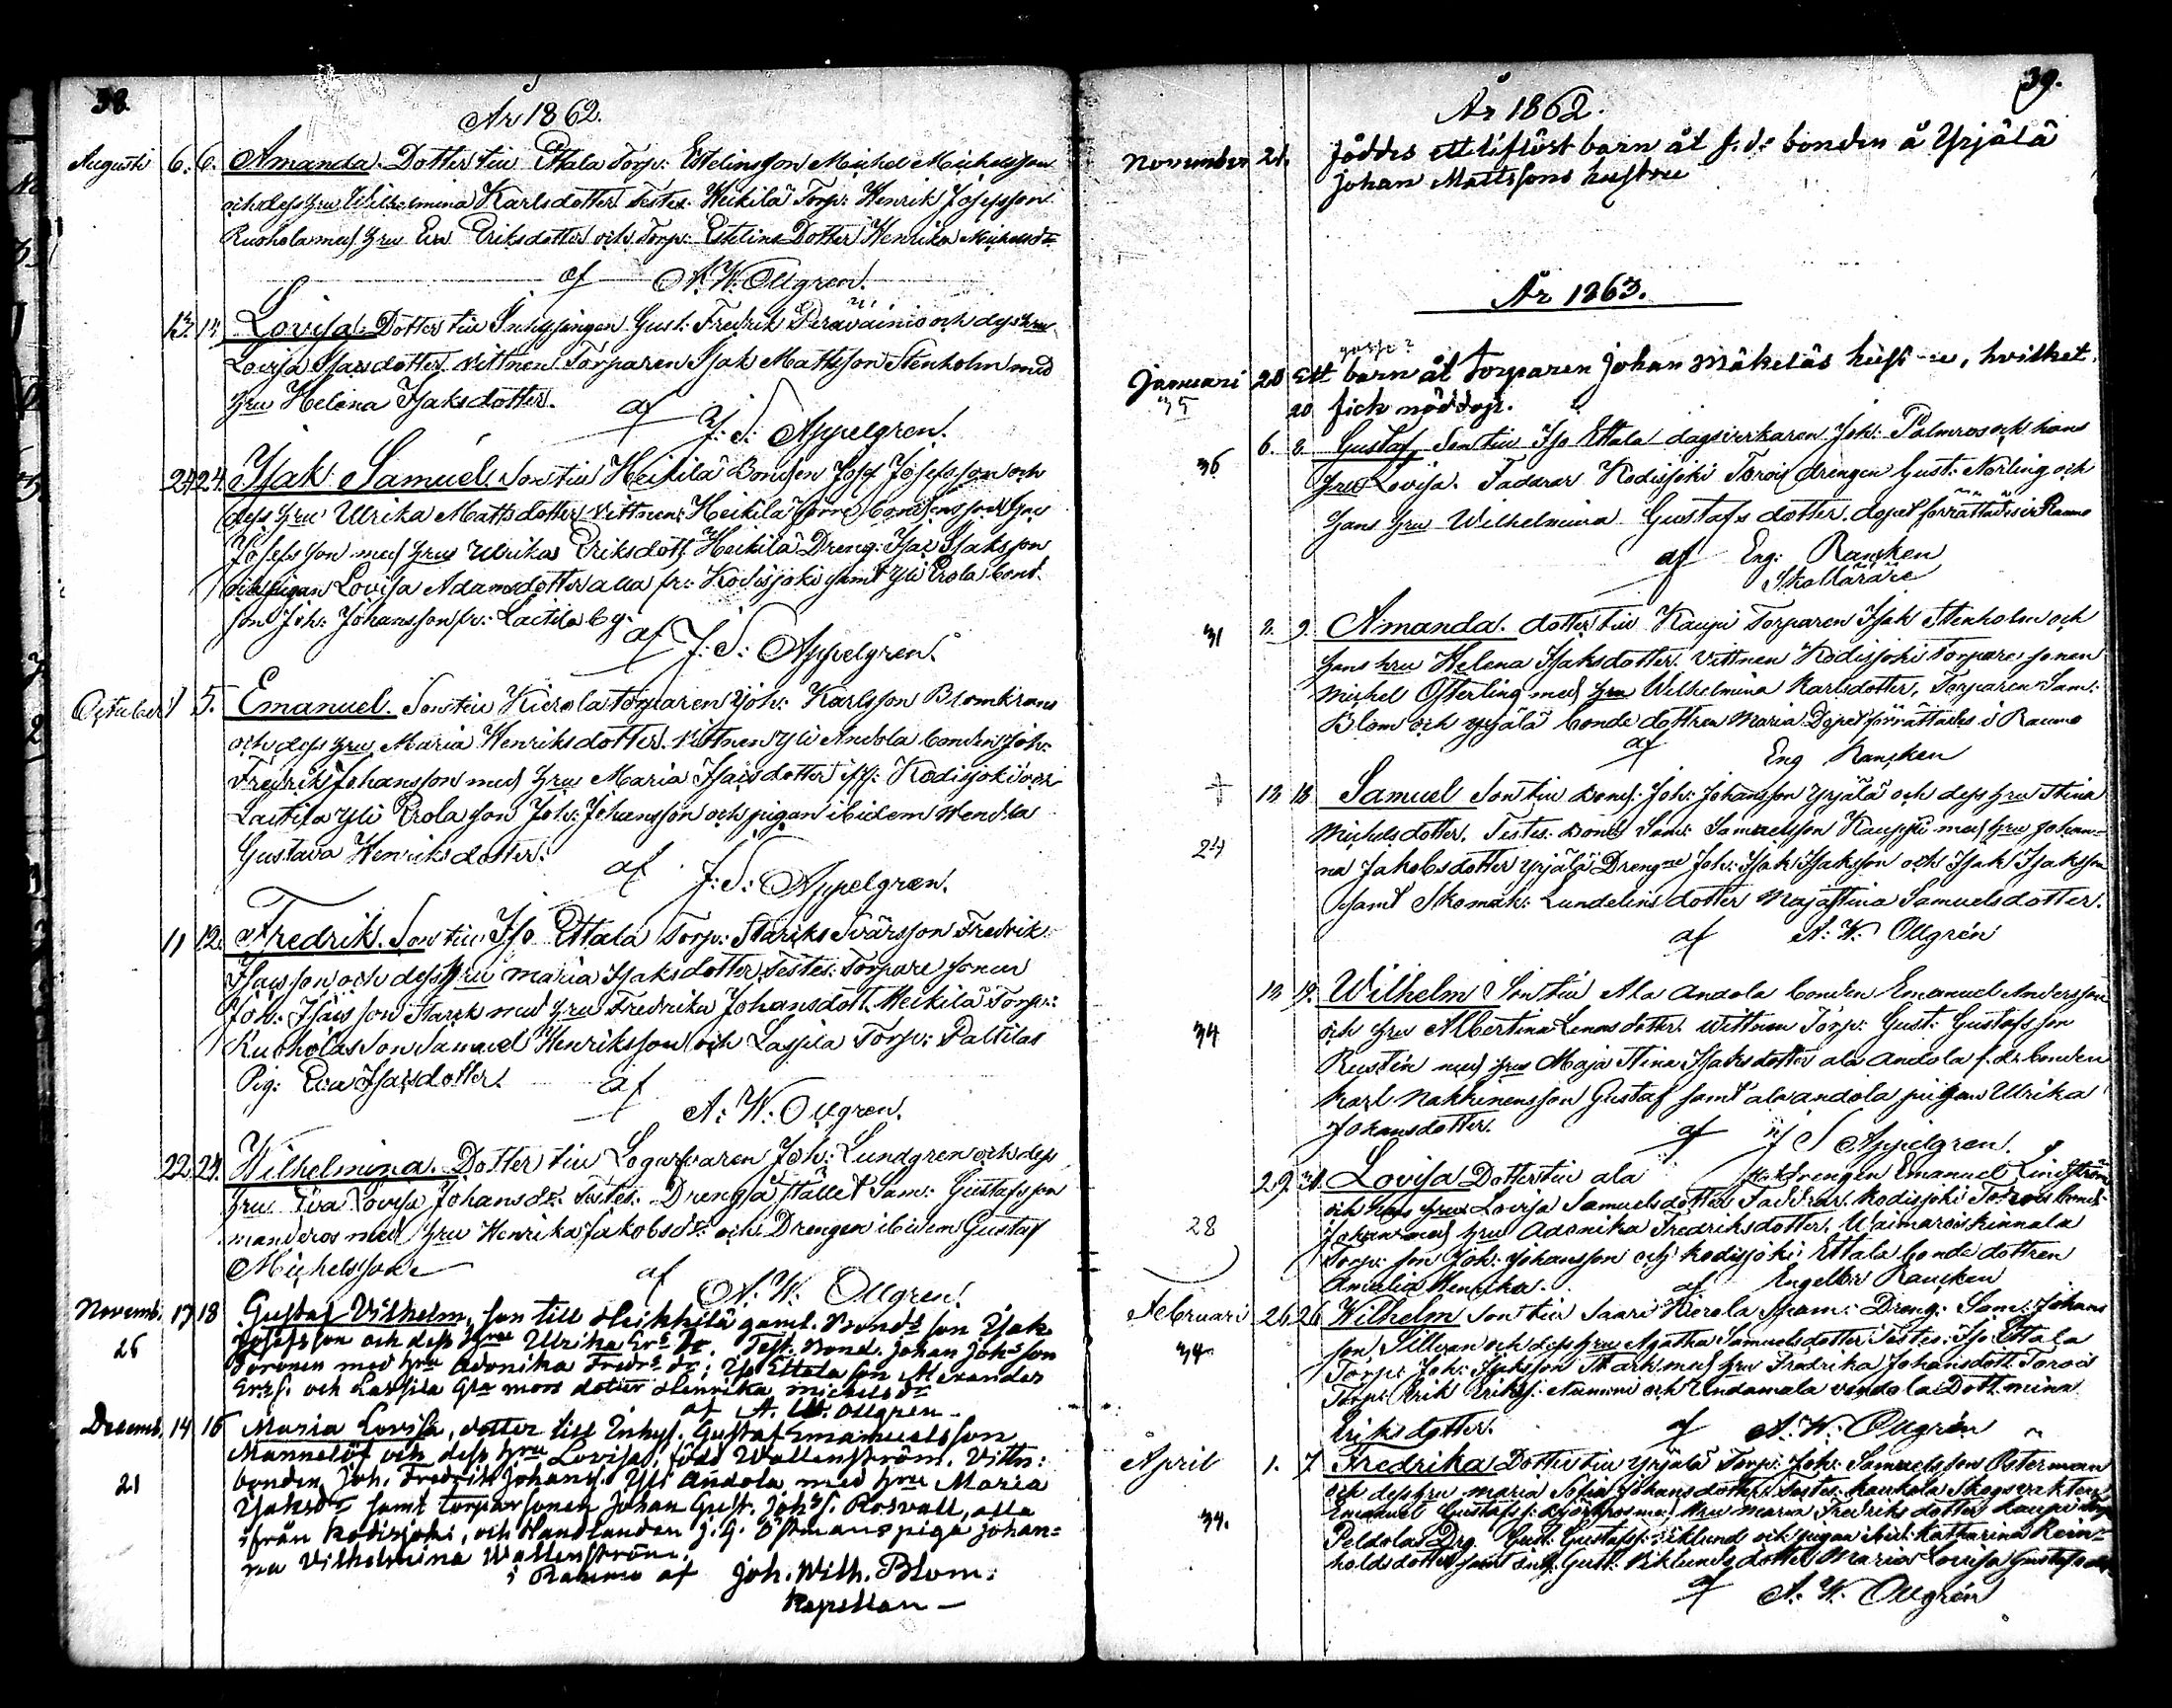 38.
År 1862.
Augusti 6. 6. Amanda. Dotter till Ettala Torp: Estelins son Michel Michelsson
och dess hru Wilhelmina Karlsdotter Testes. Heikilä Torp: Henrik Josefsson
Ruohola med hru Eva Eriksdotter och Torp: Estelins Dotter Henrika Michelsdr
af A. W. Ollgren.
13. 13. Lovisa. Dotter till Inhysingen Gust: Fredrik Peräväinio och dess hru
Lovisa Isaisdotter. Vittnen Torparen Isak Mattsson Stenholm med
hru Helena Isaksdotter.
af J: S: Appelgren.
24. 24. Isak Samuel. Son till Heikilä Bonden Josef Josefsson och
dess hru Ulrika Mattsdotter. Vittnen: Heikilä förre bondens son
Josefsson med hru Ulrika Eriksdott. Heikilä Dreng: Isak Isaksson
och pigan Lovisa Adamsdotter alla fr: Kodisjoki samt Yli Erola bond.
son Joh: Johansson fr: Laitila by.
af J: S: Appelgren.
October 1 5. Emanuel. Son till Kierola torparen Joh: Karlsson Blomkrans
och dess hru Maria Henriksdotter. Vittnen Yli Andola bonden Joh:
Fredrik Johansson med hru Maria Isaisdotter ifr: Kodisjoki och
Laitila Yli Erola son Joh: Johansson och pigan ibidem Wendla
Gustava Henriksdotter.
af J: S: Appelgren.
11 12. Fredrik. Son till Iso Ettala Torp: Starks Svärsson Fredrik
Isaisson och dess hru Maria Isaksdotter Testes: Torpare sonen
Joh: Isaisson Stark med hru Fredrika Johansdott. Heikilä Torp:
Ruoholas Son Samuel Henriksson och Lassila Torp: Paltilas
Pig: Eva Isaisdotter.
af
A: W: Ollgren.
22. 24. Wilhelmina. Dotter till Logarfvaren Joh: Lundgren och dess
hru Eva Lovisa Johansdr. Testes. Dreng å stället Sam: Gustafsson
Manderos med hru Henrika Jakobsdr. och Drengen ibidem Gustaf
Michelsson
af A. W. Ollgren.
Novemb. 17 18 Gustaf Vilhelm, son till Heikkilä gaml. Bonds son Isak
26 Josefsson och dess hru Ulrika Ers dr. Test. Bond. Johan Johsson
Toronen med hru Adonika Fredrs dr; Iso Ettala son Alexander
Ersf. och Lassila Gra mors dotter Henrika Michelsdr
af A. W. Ollgren
Decemb. 14 16 Maria Lovisa, dotter till Inhys. Gustaf Emanuelsson
Mannelöf och dess hru Lovisa, född Wallenström. Vittn:
bonden Joh. Fredrik Johans. Yli Andola med hru Maria
21 Isaksdr samt torparsonen Johan Gust. Johs. Rosvall, alla
ifrån Kodisjoki, och Handlanden J. G. Östmans piga Johan=
na Vilhelmina Wallenström.
i Raumo af Joh. Wilh. Blom.
Kapellan
39.
År 1862.
November 21. föddes ett liflöst barn åt f.d. bonden å Yrjälä
Johan Mattssons hustru
År 1863.
gosse?
Januari 20 Ett barn åt Torparen Johan Mäkeläs hustru, hvilket
35 20 fick nöddop.
36 6. 8. Gustaf. Son till Iso Ettala dagsverkaren Joh: Palmros och hans
hru Lovisa. Faddrar Kodisjoki Torois drengen Gust: Norling och
hans hru Wilhelmina Gustafs dotter. dopet förrättades i Raumo
af Eng: Rancken
Skollärare
31 8. 9. Amanda. dotter till Kaupi Torparen Isak Stenholm och
hans hru Helena Isaksdotter. Vittnen Kodisjoki Torpare sonen
Michel Österling med hru Wilhelmina Karlsdotter, Torparen Sam:
Blom och Yrjälä bonde dottren Maria. Dopet förrättades i Raumo
af Eng Rancken
+ 13 18 Samuel Son till Bond: Joh: Johansson Yrjälä och dess hru Stina
Michelsdotter. Testes: Bond Sam: Samuelsson Kauppi med hru Johan=
24 na Jakobsdotter Yrjälä Drengne Joh: Isak Isaksson och Isak Isaksson
samt Skomak: Lundelins dotter Maja Stina Samuelsdotter.
af A: W: Ollgrén
13 19. Wilhelm Son till Ala Andola bonden Emanuel Andersson
och hru Albertina Lenasdotter. Wittnen Torp: Gust: Gustafsson
34 Rustén med hru Maja Stina Isaksdotter ala Andola f.d. bonden
Karl Nahkinens son Gustaf samt ala andola pigan Ulrika
Johansdotter. af J S Appelgren.
29. 31. Lovisa Dotter till ala drengen Emanuel Lindström
och hans hru Lovisa Samuelsdotter Faddrar. Kodisjoki Torois bond
28 Johan med hru Adonika Fredriksdotter, Waimaro Kinnala
Torp: son Joh: Johansson och Kodisjoki Ettala bonde dottren
Amalia Henrika. af Engelbr Rancken
Februari 26. 26 Wilhelm Son till Saari Kierola Dreng: Sam: Johans
son Sillvan och dess hru Agatha Samuelsdotter Testes: Iso Ettala
34 Torp: Joh: Isaksson Stark med hru Fredrika Johansdott. Torois
Torp: Erik Eriks: Nummi och Undamala vendola Dott. Mina
Eriksdotter. af A. W: Ollgrén
April 1. 7 Fredrika Dotter till Yrjälä Torp: Joh: Samuelsson Österman
och dess hru Maria Sofia Johansdotter. Testes. Kaukola Skogvakten
34. Emanuel Gustafs: Björkros med hru Maria Fredriks dotter Kaupi Torp
Peldolas Drg. Gust: Gustafs: Eklund och pigan ibid: Katharina Rein=
holdsdotter samt Inh: Gust: Eklunds dotter Maria Lovisa Gustafsdr
af A. W. Ollgrén